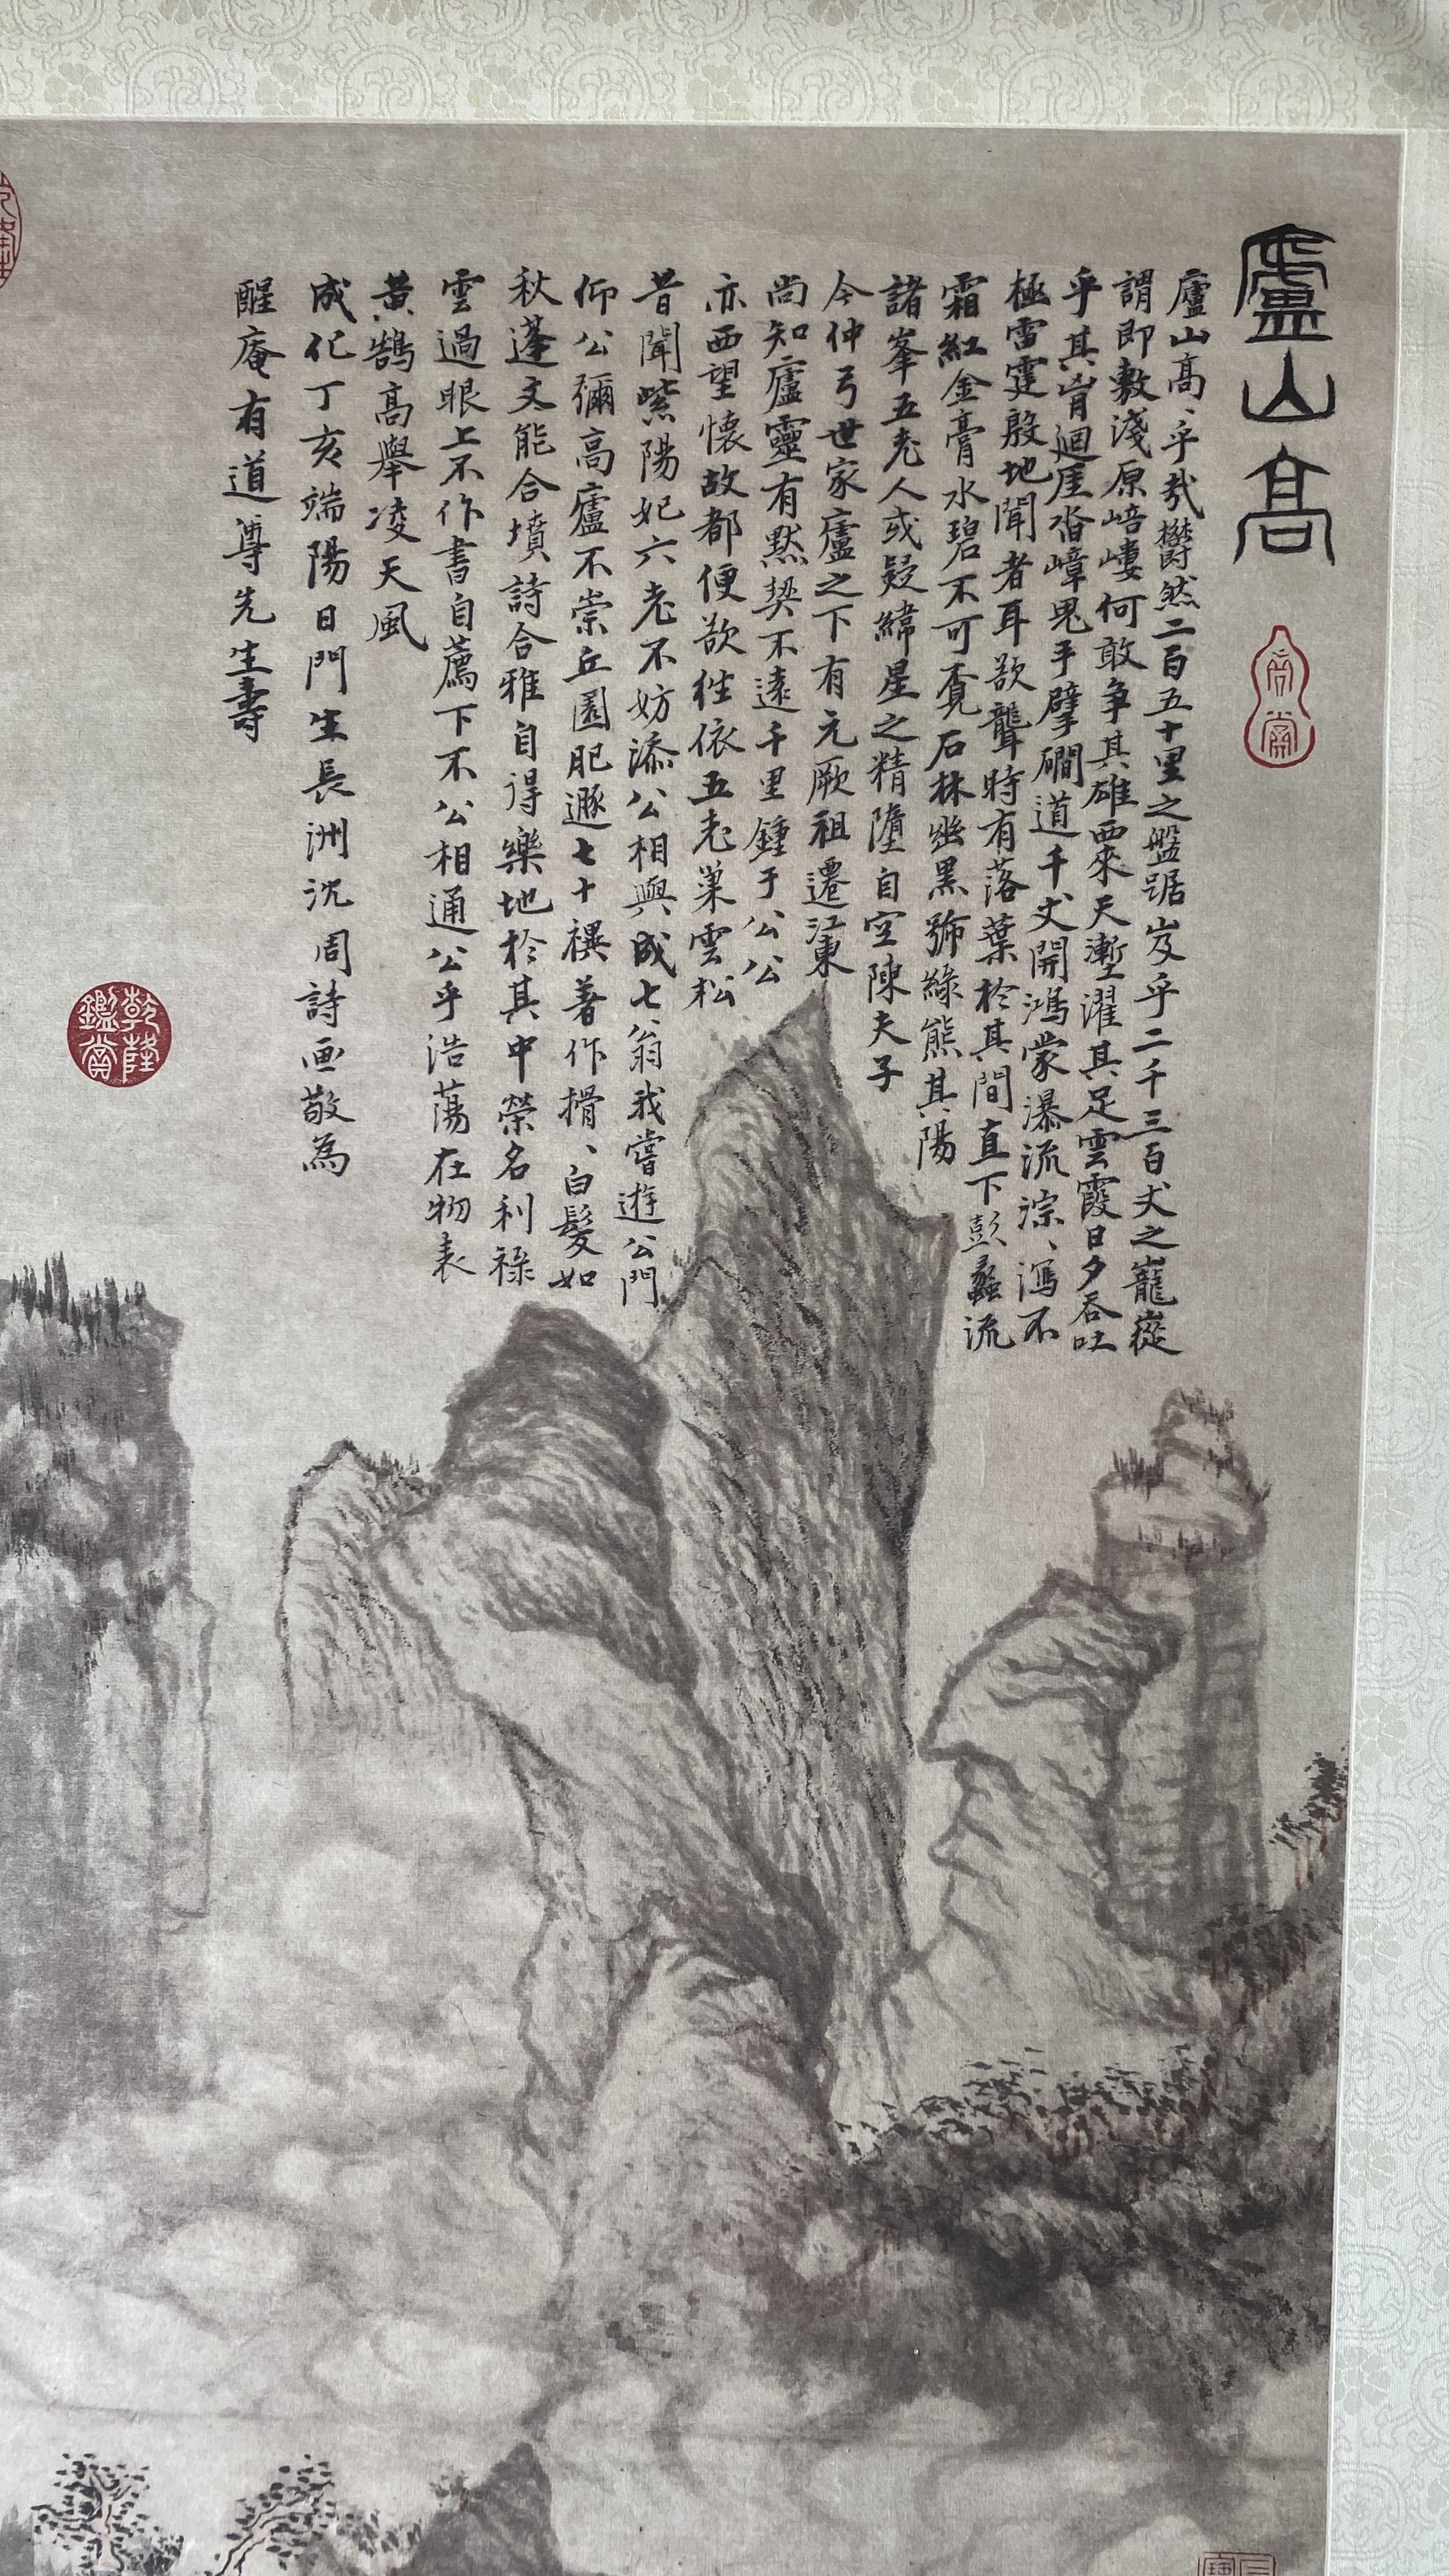 廬山高
廬山高、乎哉欝然二百五十里之盤踞岌乎二千三百丈之巃嵸
謂即敷淺原峼嶁何敢争其雄西來天塹濯其足雲霞日夕吞吐
乎其胷迴厓沓嶂鬼手擘磵道千丈開鴻蒙瀑流淙、瀉不
極雷霆殷地聞者耳欲聾時有落葉於其間直下彭蠡流
霜紅金膏水碧不可覓石林幽黑號綠熊其陽
諸峯五老人或疑緯星之精墮自空陳夫子
今仲弓世家廬之下有元厥祖遷江東
尚知廬靈有默契不遠千里鍾于公公
亦西望懷故都便欲徃依五老巢雲松
昔聞紫陽妃六老不妨添公相與成七翁我嘗遊公門
仰公彌高廬不崇丘園肥遯七十禩著作搰、白髮如
秋蓬文能合墳詩合雅自得樂地於其中榮名利祿
雲過眼上不作書自薦下不公相通公乎浩蕩在物表
黃鵠高舉凌天風
成化丁亥端陽日門生長洲沈周詩画敬為
醒庵有道尊先生壽
乾隆鑑賞